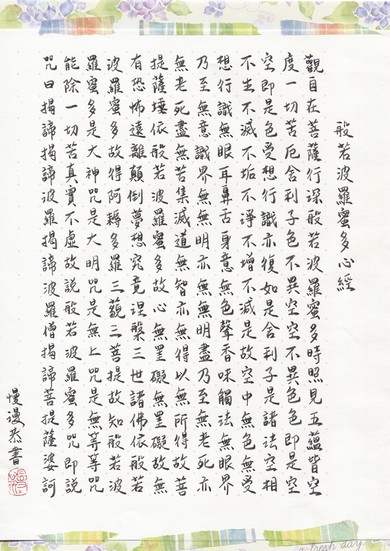 般若波羅蜜多心經
觀自在菩薩行深般若波羅蜜多時照見五蘊皆空
度一切苦厄舍利子色不異空空不異色色即是空
空即是色受想行識亦復如是舍利子是諸法空相
不生不滅不垢不淨不增不減是故空中無色無受
想行識無眼耳鼻舌身意無色聲香味觸法無眼界
乃至無意識界無無明亦無無明盡乃至無老死亦
無老死盡無苦集滅道無智亦無得以無所得故菩
提薩埵依般若波羅蜜多故心無罣礙無罣礙故無
有恐怖遠離顛倒夢想究竟涅槃三世諸佛依般若
波羅蜜多故得阿耨多羅三藐三菩提故知般若波
羅蜜多是大神咒是大明咒是無上咒是無等等咒
能除一切苦真實不虛故說般若波羅蜜多咒即說
咒曰揭諦揭諦波羅揭諦波羅僧揭諦菩提薩婆訶
慢漫恭書
day